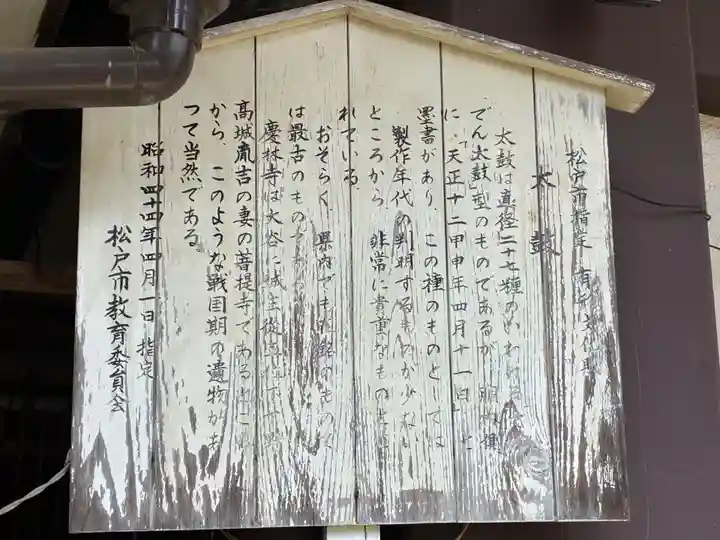 松戸市指定 有形文化財
太鼓
太鼓は直径二十七糎のいわゆる
でん太鼓」型のものであるが 胴内側
に、「天正十二甲申年四月十一日」と
墨書があり この種のものとしては
製作年代の判明するものが少ない
ところから、非常に貴重なものとさ
れている。
おそらく、県内でも在銘のものでは
は最古のものである
慶林寺は大谷口城主
高城胤吉の妻の菩提寺であるところ
から、このような戦国期の遺物があ
って当然である。
昭和四十四年四月一日 指定
松戸市教育委員会